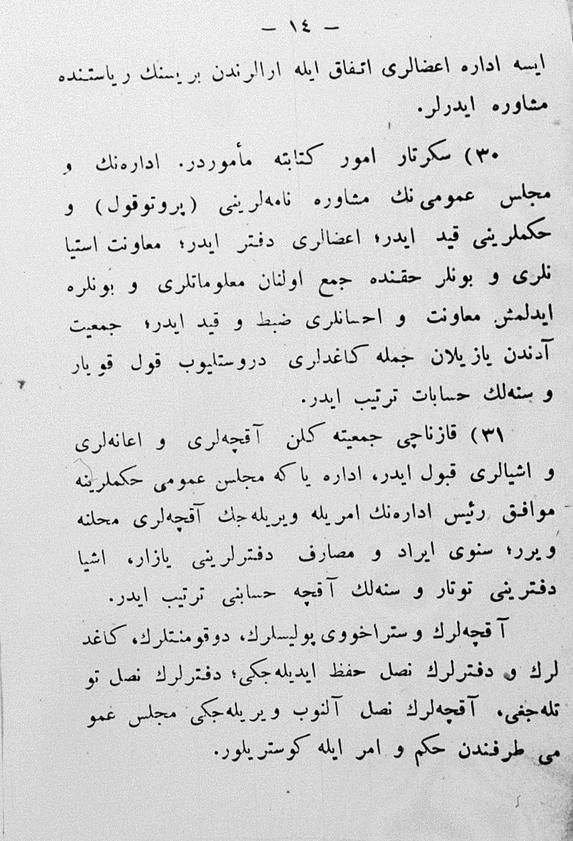 — ١٤ —
ايسه اداره اعضالری اتفاق ايله ارالرندن بريسنك رياستنده
مشاوره ايدرلر.
٣٠) سكرتار امور كتابته مأموردر. ادارهنك و
مجلس عمومی نك مشاوره نامهلرينی (پروتوقول) و
حكملرينی قيد ايدر؛ اعضالری دفتر ايدر؛ معاونت استيا
نلری و بونلر حقنده جمع اولنان معلوماتلری و بونلره
ايدلمش معاونت و احسانلری ضبط و قيد ايدر؛ جمعيت
آدندن يازيلان جمله كاغدلری دروستليوب قول قويار
و سنهلك حسابات ترتيب ايدر.
٣١) قازناچی جمعيته كلن آقچهلری و اعانهلری
و اشيالری قبول ايدر، اداره ياكه مجلس عمومی حكملرينه
موافق رئيس ادارهنك امريله ويريلهجك آقچهلری محلنه
ويرر؛ سنوی ايراد و مصارف دفترلرينی يازار، اشيا
دفترينی توتار و سنهلك آقچه حسابنی ترتيب ايدر.
آقچهلرك و ستراخووی پوليسلرك، دوقومنتلرك، كاغد
لرك و دفترلرك نصل حفظ ايديلهجكی؛ دفترلرك نصل تو
تلهجغی، آقچهلرك نصل آلنوب ويريلهجكی مجلس عمو
می طرفندن حكم و امر ايله كوستريلور.